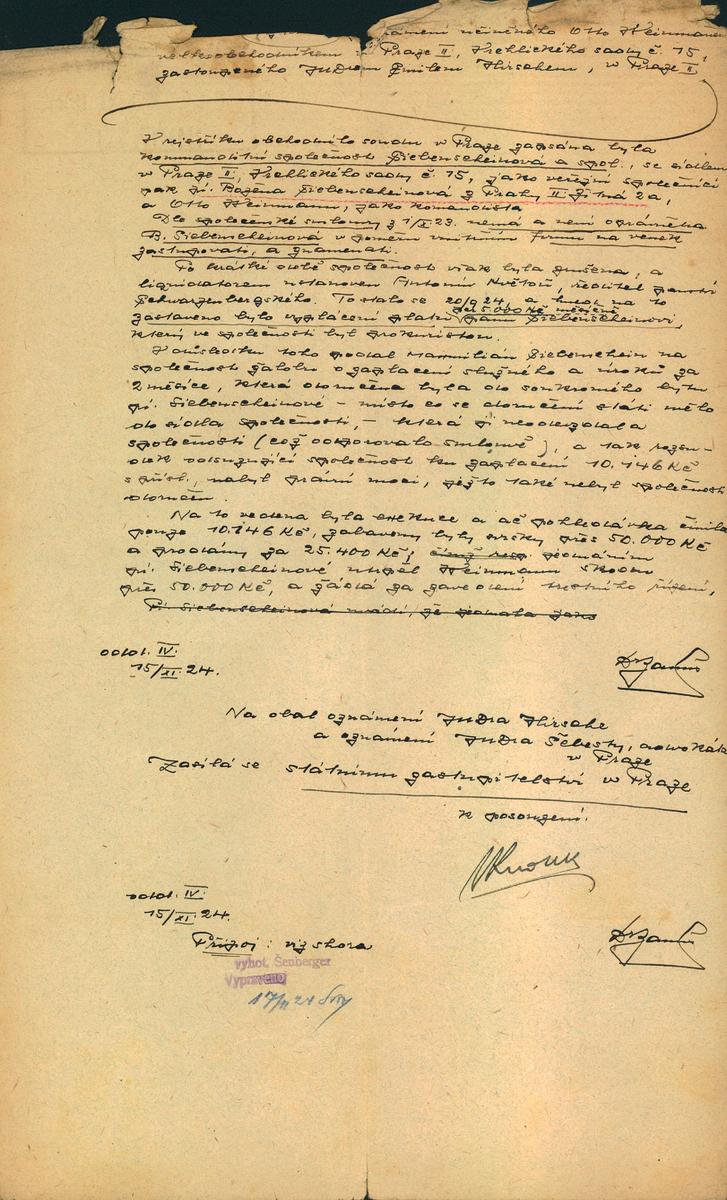 oznámení učiněného Otto Heinmanem
velkoobchodníkem v Praze II, Vrchlického sady č. 15,
zastoupeného JUDrem Emilem Hirschem, v Praze II
V rejstříku obchodního soudu v Praze zapsána byla
kommanditní společnost Siebenscheinová a spol., se sídlem
v Praze II, Vrchlického sady č. 15, jako veřejní společníci
pak pí. Božena Siebenscheinová z Prahy II Žitná 2a,
a Otto Heinmann, jako komandista
Dle společenské smlouvy z 1/X 23. nemá a není oprávněna
B. Siebenscheinová v poměru vnitřním firmu na venek
zastupovati, a znamenati.
Po krátké době společnost však byla zrušena, a
likvidátorem ustanoven Antonín Květoň, ředitel panství
Schwarzenbergského. To stalo se 20/9 24 a hned na to
per 5.000 Kč měsíčně
zastaveno bylo vyplácení platu panu Siebenscheinovi,
který ve společnosti byl prokuristou.
V důsledku toho podal Maxmilián Siebenschein na
společnost žalobu o zaplacení služného a úroků za
2 měsíce, která doručena byla do soukromého bytu
pí. Siebenscheinové – místo co se doručení státi mělo
do sídla společnosti, – která ji neodevzdala
společnosti (což odporovalo smlouvě), a tak rozsu-
dek odsuzující společnost ku zaplacení 10.146 Kč
s přísl., nabyl právní moci, jež to také nebyl společnosti
doručen.
Na to vedena byla exekuce a ač pohledávka činila
pouze 10.146 Kč, zabaveny byly svršky přes 50.000 Kč
a prodány za 25.400 Kč; čímž resp. jednáním
pí. Siebenscheinové utrpěl Heinmann škodu
přes 50.000 Kč, a žádá za zavedení trestního řízení,
Pí. Siebenscheinová uvádí, že jednala jako
odd. IV.
15/XI. 24.
Na obal oznámení JUDra Hirsche
a oznámení JUDra Šebesty, advokáta
v Praze
Zasílá se státnímu zastupitelství v Praze
k posouzení.
odd. IV.
15/XI. 24.
Připoj: viz shora
vyhot. Šenberger
Vypraveno